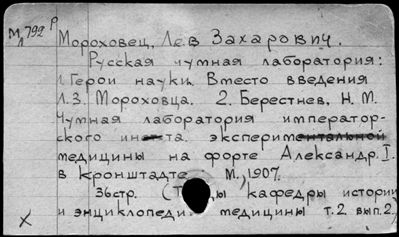 М 792 Р
Л
Мороховец, Лев Захарович.
Русская чумная лаборатория:
1. Герои науки. Вместо введения
Л.З. Мороховца. 2. Берестнев, Н. М.
Чумная лаборатория император-
ского ин-та эксперимен
медицины на форте Александр. I.
в Кронштадте М., 1907.
36стр. (Т ды кафедры истории
и энциклопеди. медицины т.2. вып.2)
X